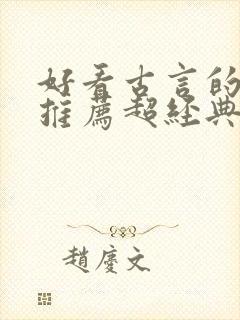 好看古言的
推薦超經典
趙慶文